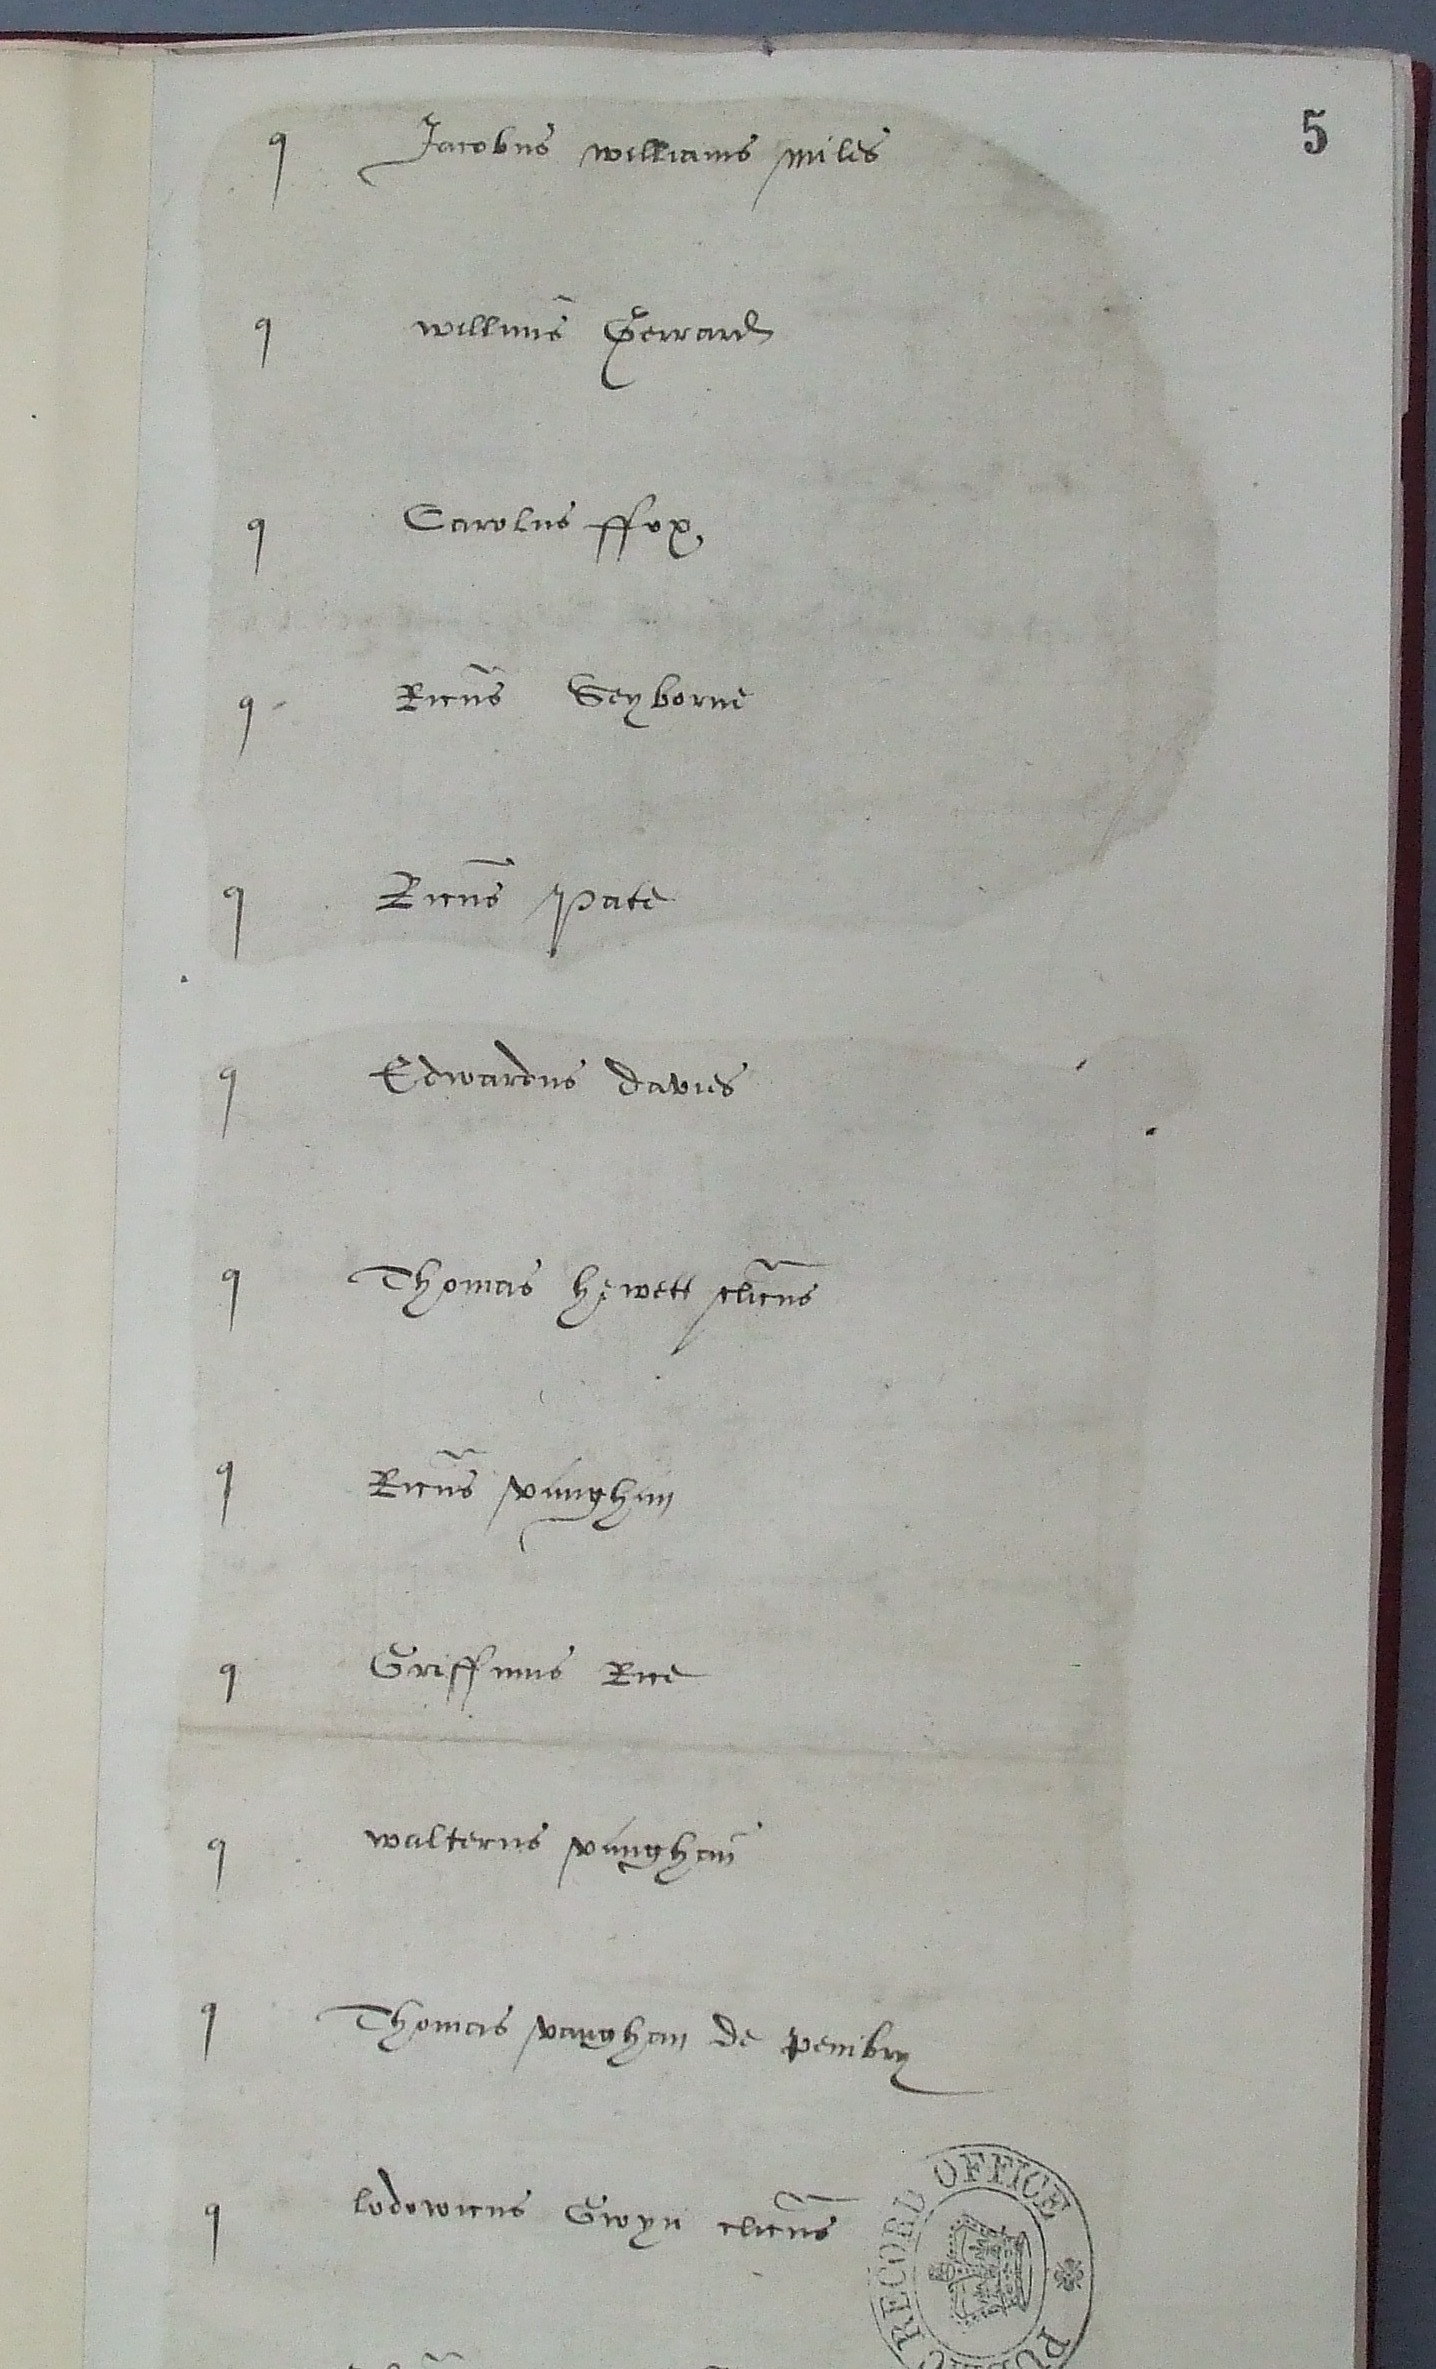 5
q Jacobus Williams miles
q Willmus Gerrard
q Carolus ffox
q Ricus Seyborne
q Ricus Pate
q Edwardus Davies
q Thomas Hewett clicus
q Ricus Vaughan
q Griffinus Rice
q Walterus Vaughan
q Thomas Vaughan de Pembry
q Lodowicus Gwyn clicus
PUBLIC RECORD OFFICE